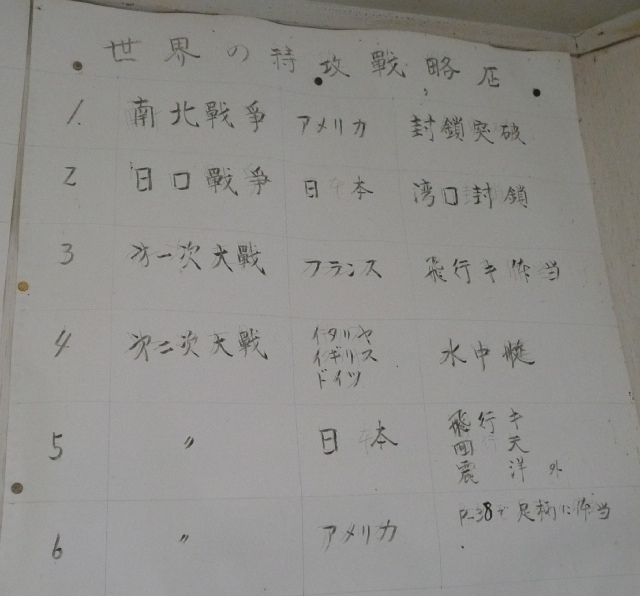 世界の特攻戦略
1. 南北戦争 アメリカ 封鎖突破
2 日口戦争 日本 湾口封鎖
3 才一次大戦 フランス 飛行キ体当
4 次二次大戦 イタリヤ イギリス ドイツ 水中艇
5 〃 日本 飛行キ 回天 震洋 外
6 〃 アメリカ P-38で足柄に体当